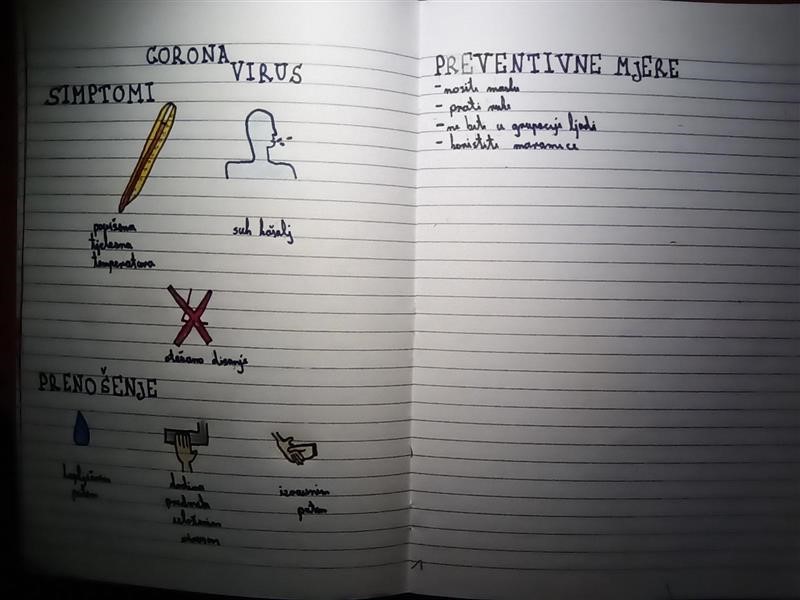 CORONA
VIRUS
SIMPTOMI
tjelesna
temperatura
suh kašalj
disanje
PRENOŠENJE
kapljičnim
putem
predmeta
izravnim
putem
PREVENTIVNE MJERE
- nositi masku
- prati ruke
- ne biti u grupacije ljudi
- koristiti maramice